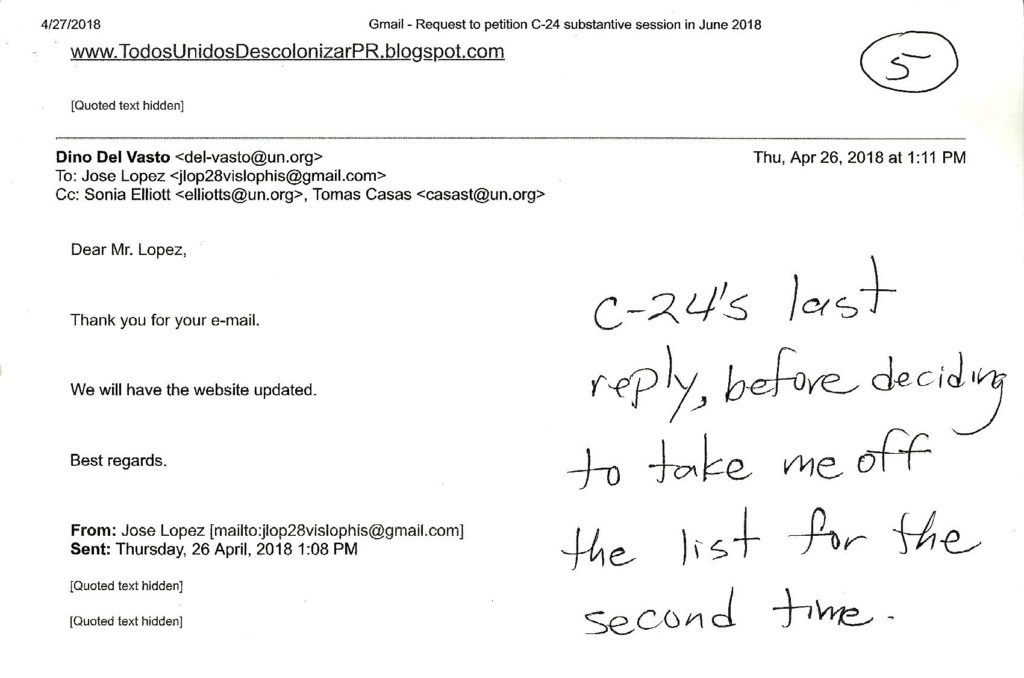 4/27/2018 Gmail - Request to petition C-24 substantive session in June 2018
www.TodosUnidosDescolonizarPR.blogspot.com
5
[Quoted text hidden]
Dino Del Vasto <del-vasto@un.org> Thu, Apr 26, 2018 at 1:11 PM
To: Jose Lopez <jlop28vislophis@gmail.com>
Cc: Sonia Elliott <elliotts@un.org>, Tomas Casas <casast@un.org>
Dear Mr. Lopez,
Thank you for your e-mail.
We will have the website updated.
Best regards.
From: Jose Lopez [mailto:jlop28vislophis@gmail.com]
Sent: Thursday, 26 April, 2018 1:08 PM
[Quoted text hidden]
[Quoted text hidden]
C-24's last
reply, before deciding
to take me off
the list for the
second time.